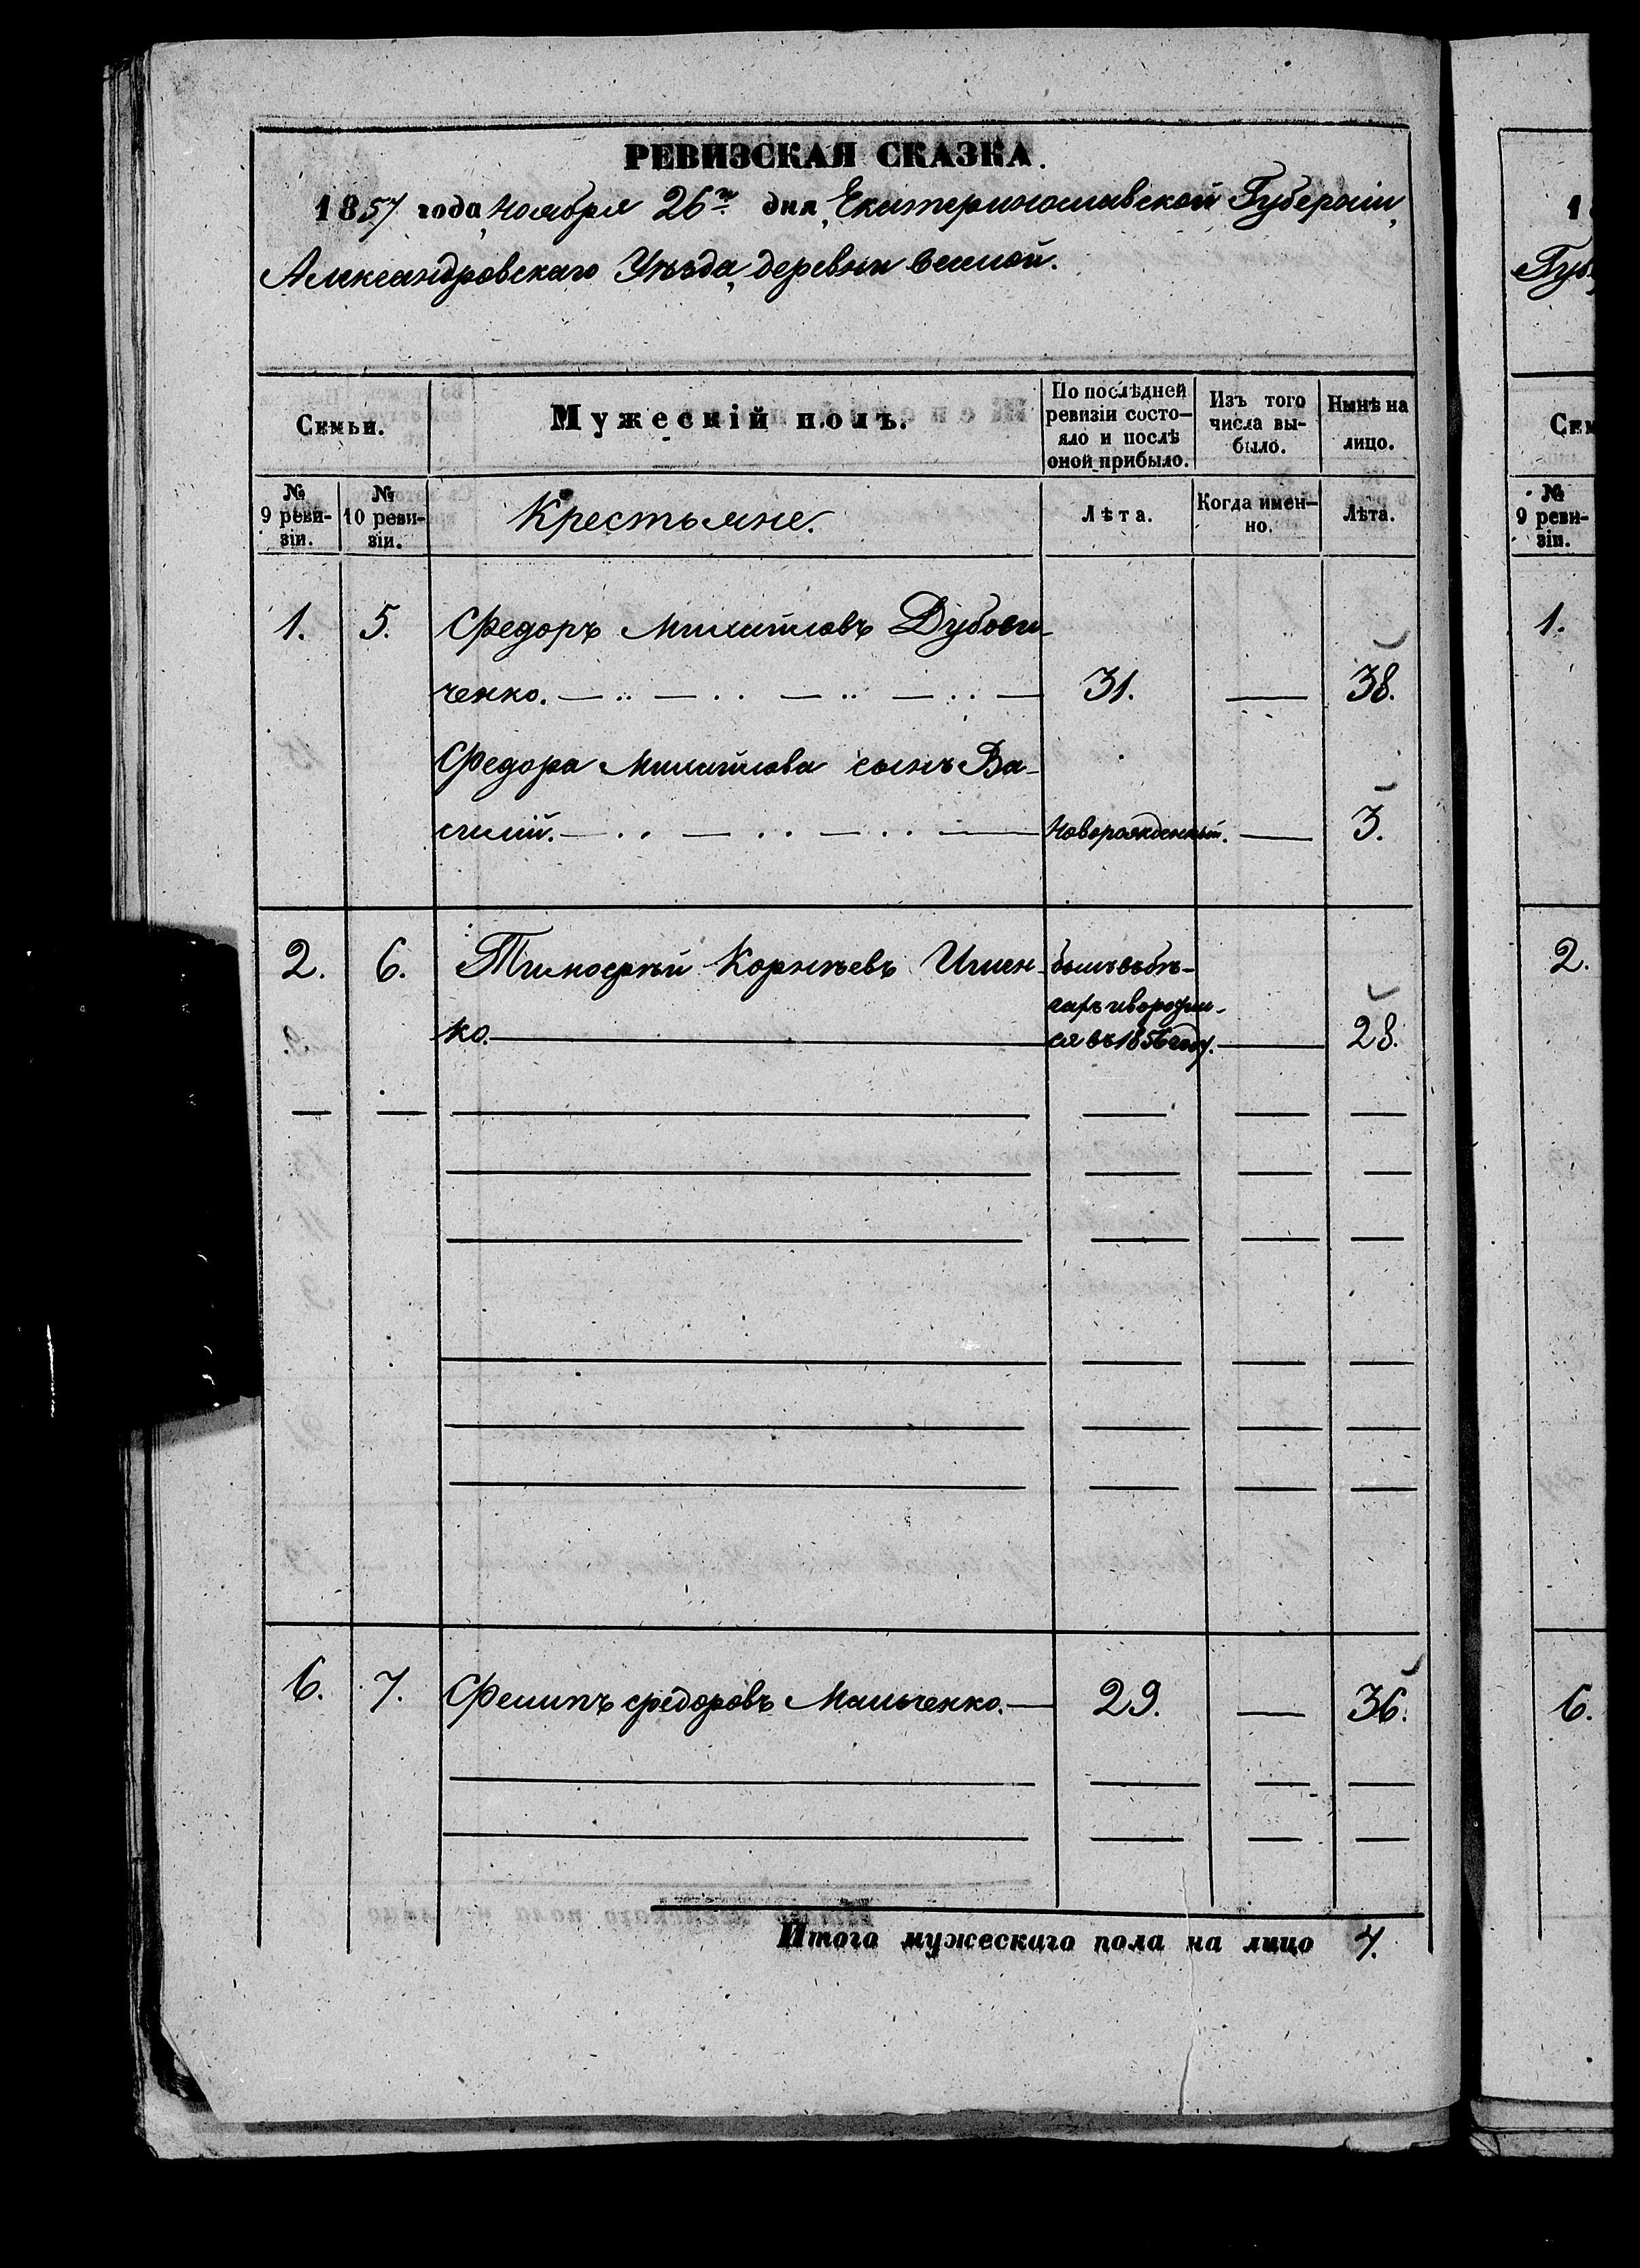 РЕВИЗСКАЯ СКАЗКА.
1857 года, Ноября 26го дня, Екатеринославской Губерніи,
Александровскаго Уѣзда, деревни
Семьи.
Мужескій полъ.
По послѣдней ревизіи состо-
яло и послѣ
оной прибыло.
Изъ того
числа вы-
было.
Нынѣ на
лицо.
№
9 реви-
зіи.
№
10 реви-
зіи.
Крестьяне.
Лѣта.
Когда имен-
но.
Лѣта.
1. 5. Федоръ Михайловъ Дубови-
ченко. 31. — 38.
Федора Михайлова сынъ Ва-
силій. Новорожденный. — 3.
2. 6. Тимофѣй Корнѣевъ Ищен- былъ въ бѣ-
гахъ и воротил-
ко. ся въ 1856 году. — 28.
6. 7. Филипъ Федоровъ Мальченко. — 29. — 36.
Итого мужескаго пола на лицо 4.
1
Губе
Сем
№
9 реви-
зіи.
1.
2.
6.